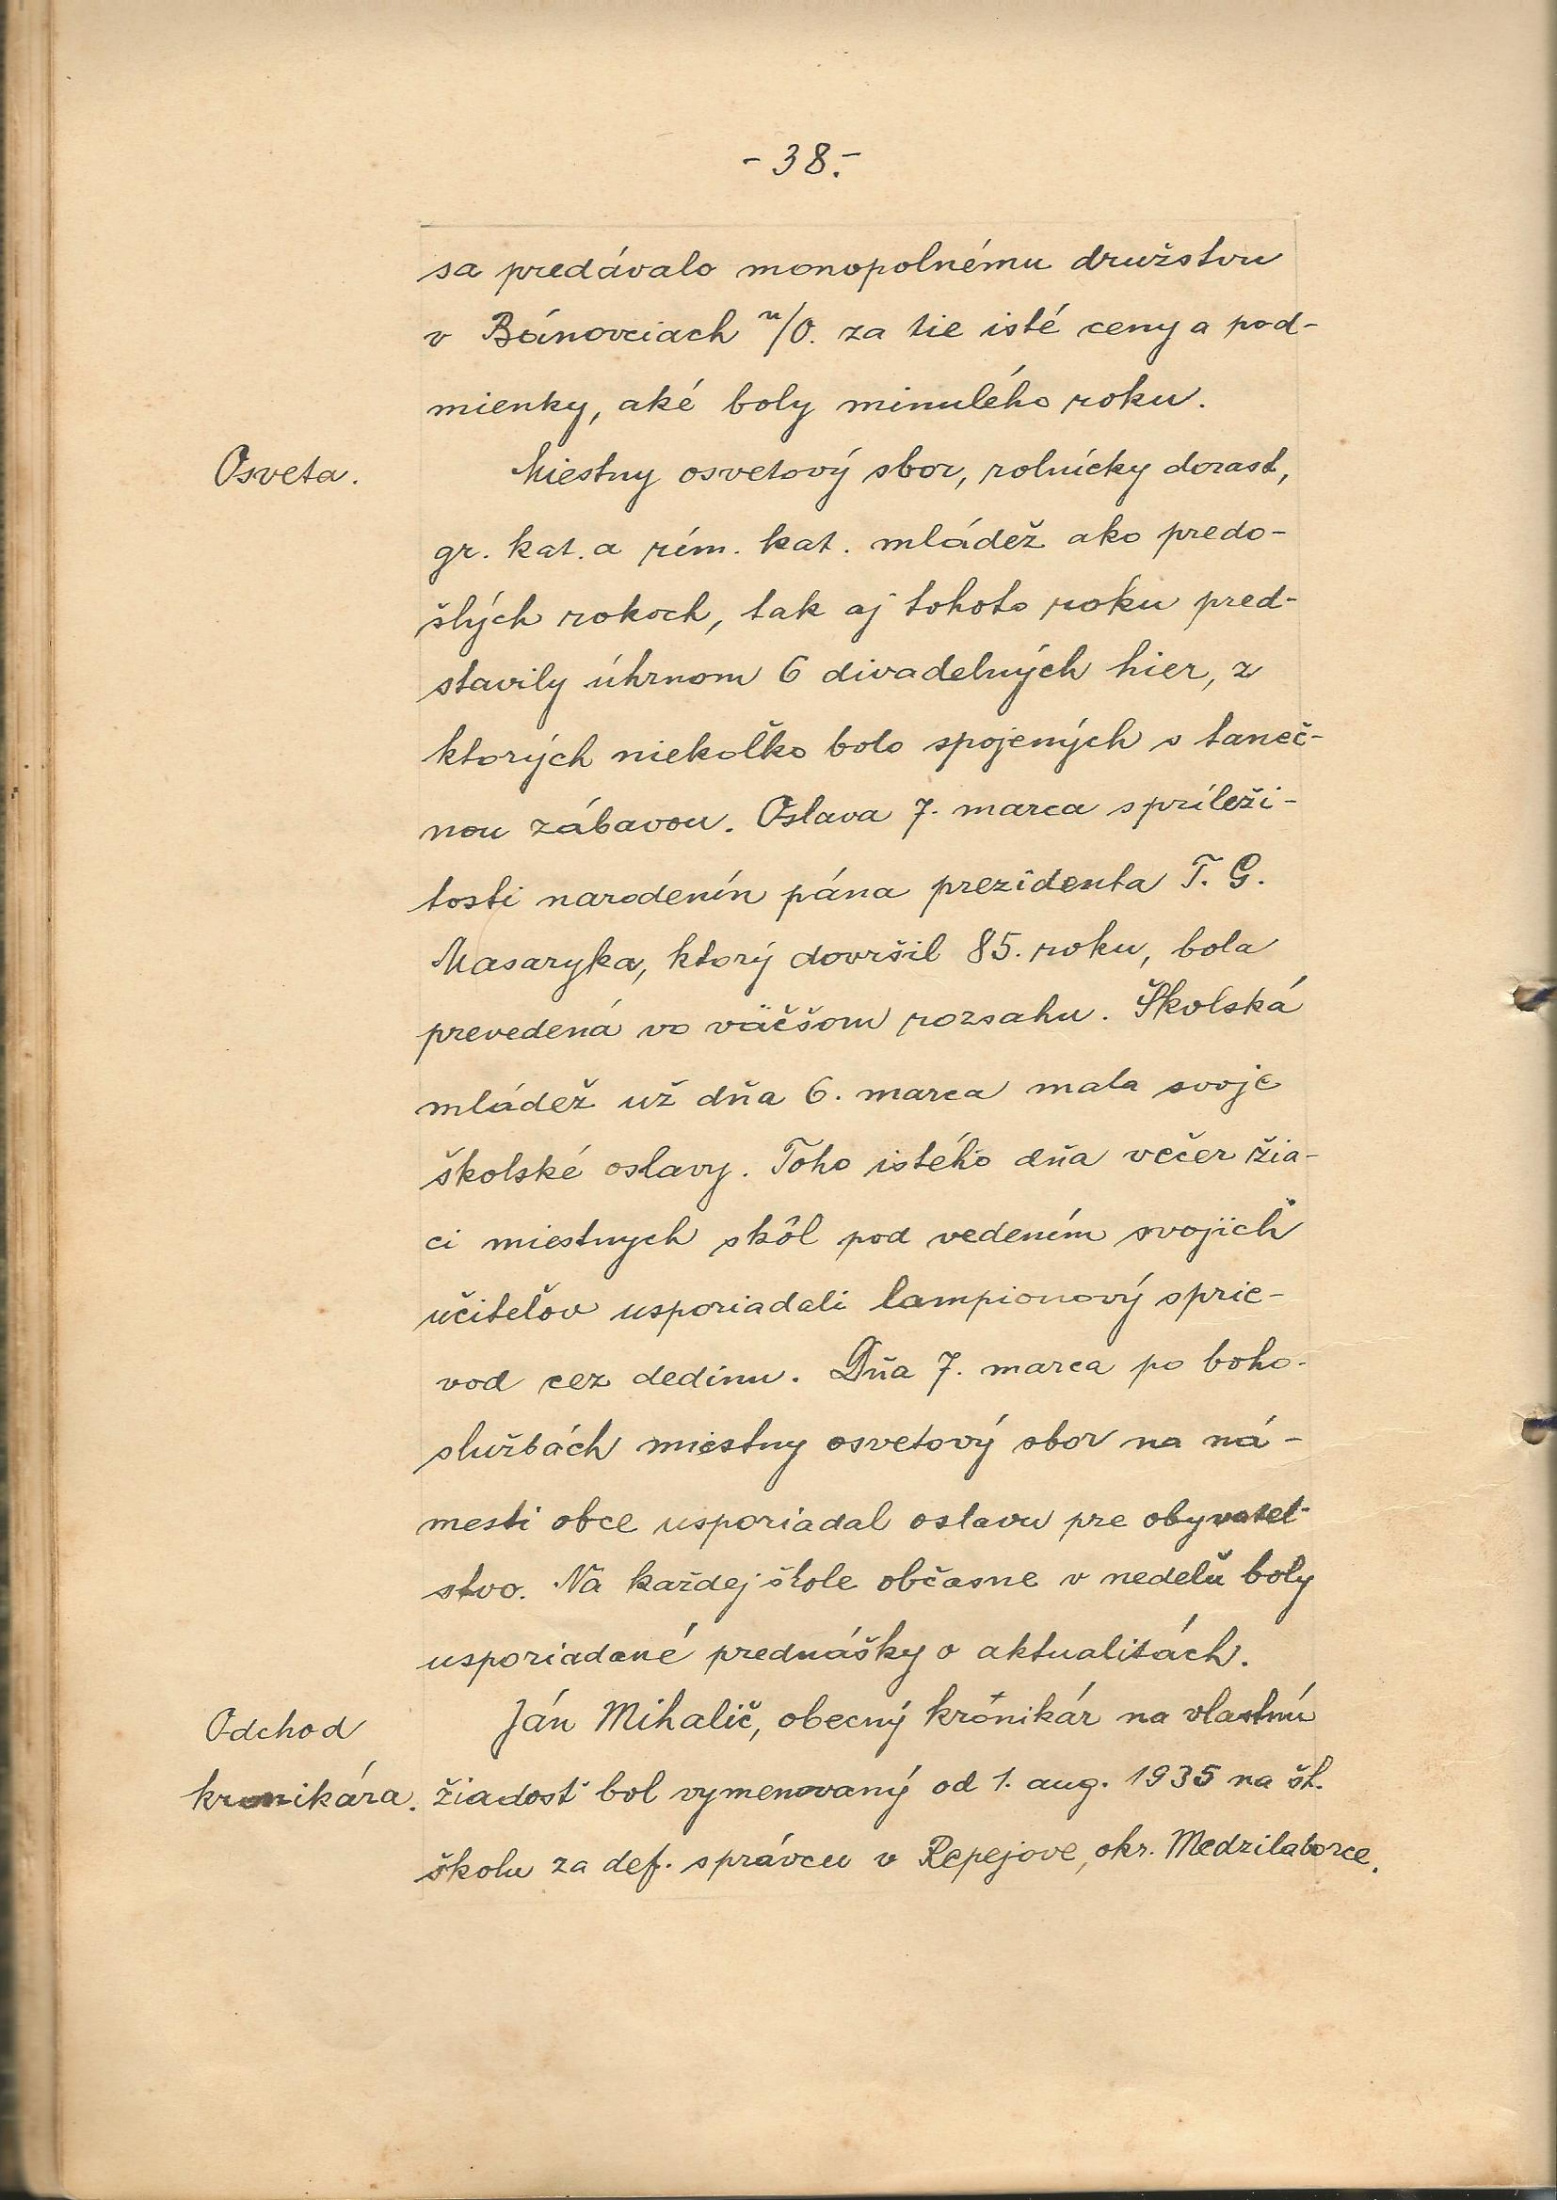 - 38.-
sa predávalo monopolnému družstvu
v Bánovciach n/O. za tie isté ceny a pod-
mienky, aké boly minulého roku.
Osveta.
Miestny osvetový sbor, rolnícky dorast,
gr. kat. a rím. kat. mládež ako predo-
šlých rokoch, tak aj tohoto roku pred-
stavily úhrnom 6 divadelných hier, z
ktorých niekoľko bolo spojených s taneč-
nou zábavou. Oslava 7. marca s príleži-
tosti narodenín pána prezidenta T. G.
Masaryka, ktorý dovršil 85. roku, bola
prevedená vo väčšom rozsahu. Školská
mládež už dňa 6. marca mala svoje
školské oslavy. Toho istého dňa večer žia-
ci miestnych škôl pod vedením svojich
učiteľov usporiadali lampionový sprie-
vod cez dedinu. Dňa 7. marca po boho-
službách miestny osvetový sbor na ná-
mestí obce usporiadal oslavu pre obyvateľ-
stvo. Na každej škole občasne v nedeľu boly
usporiadané prednášky o aktualitách.
Odchod
kronikára.
Ján Mihalič, obecný kronikár na vlastnú
žiadosť bol vymenovaný od 1. aug. 1935 na št.
školu za def. správcu v Repejove, okr. Medzilaborce.